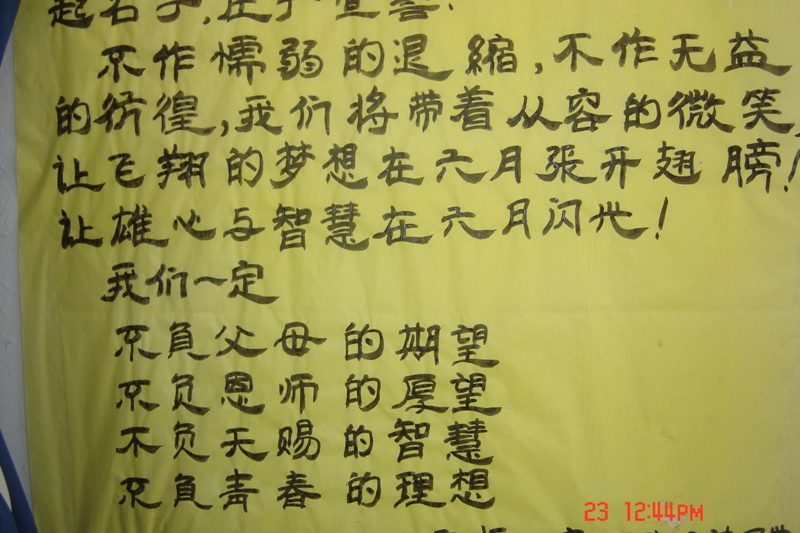 起右手,庄严宣誓:
不作懦弱的退缩,不作无益
的彷徨,我们将带着从容的微笑,
让飞翔的梦想在六月張开翅膀!
让雄心与智慧在六月闪光!
我们一定
不負父母的期望
不负恩师的厚望
不负天赐的智慧
不負青春的理想
23 12:44PM